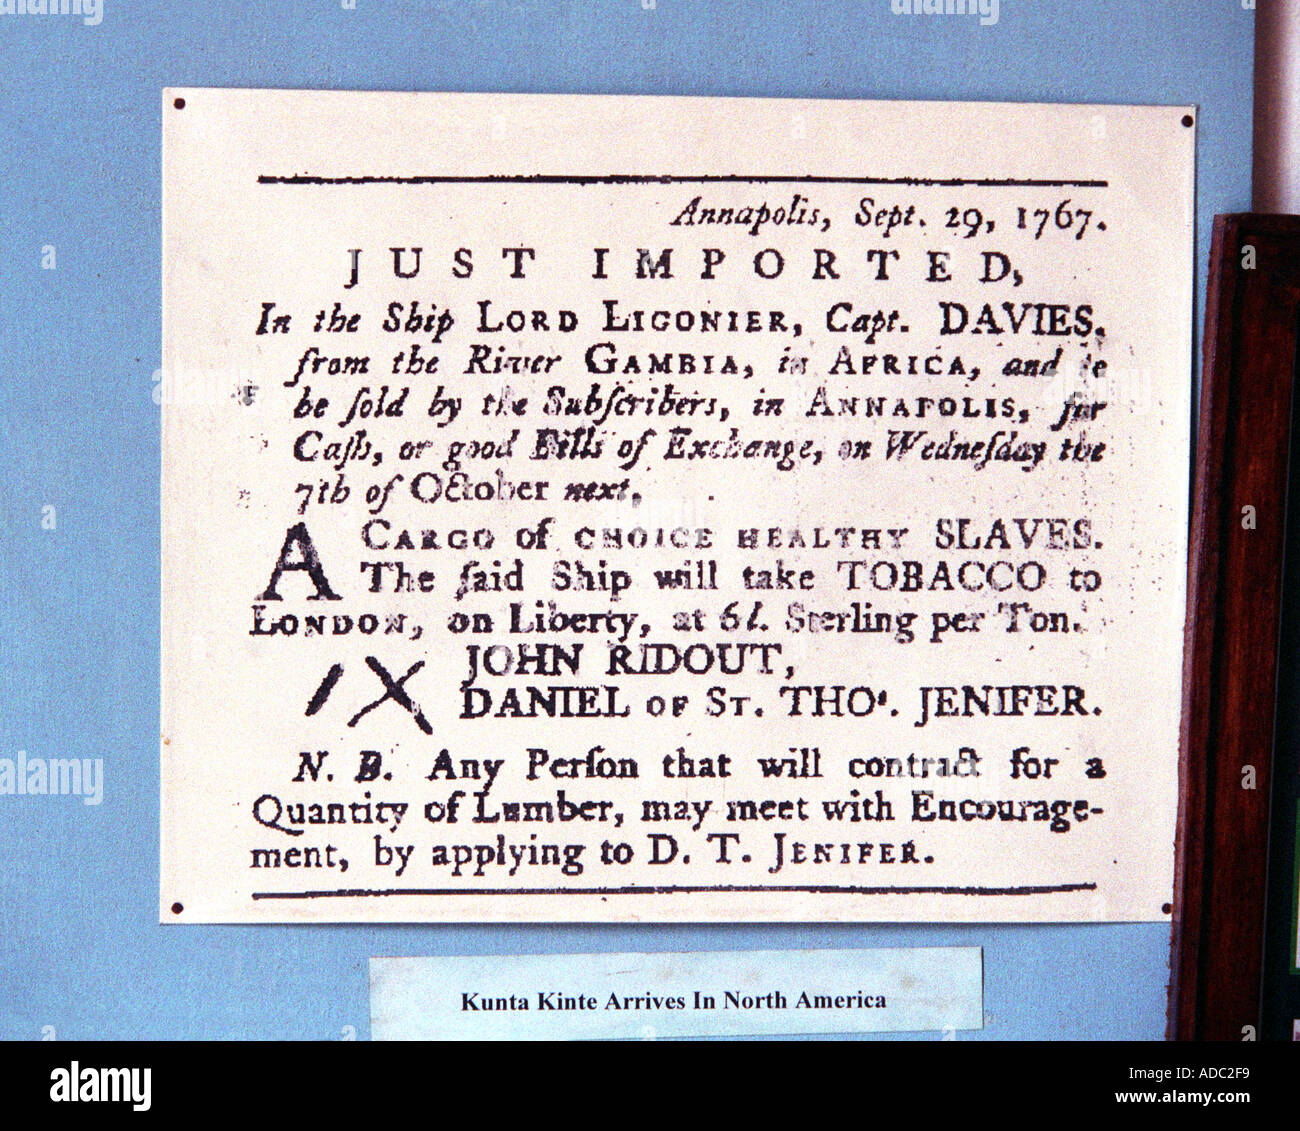 Annapolis, Sept. 29, 1767.
JUST IMPORTED,
In the Ship LORD LIGONIER, Capt. DAVIES,
from the River GAMBIA, in AFRICA, and to
be ſold by the Subſcribers, in ANNAPOLIS, for
Caſh, or good Bills of Exchange, on Wedneſday the
7th of October next,
A CARGO of CHOICE HEALTHY SLAVES.
The ſaid Ship will take TOBACCO to
LONDON, on Liberty, at 6l. Sterling per Ton.
JOHN RIDOUT,
DANIEL OF ST. THOˢ. JENIFER.
N. B. Any Perſon that will contract for a
Quantity of Lumber, may meet with Encourage-
ment, by applying to D. T. JENIFER.
Kunta Kinte Arrives In North America
alamy
a
alamy
Image ID: ADC2F9
www.alamy.com